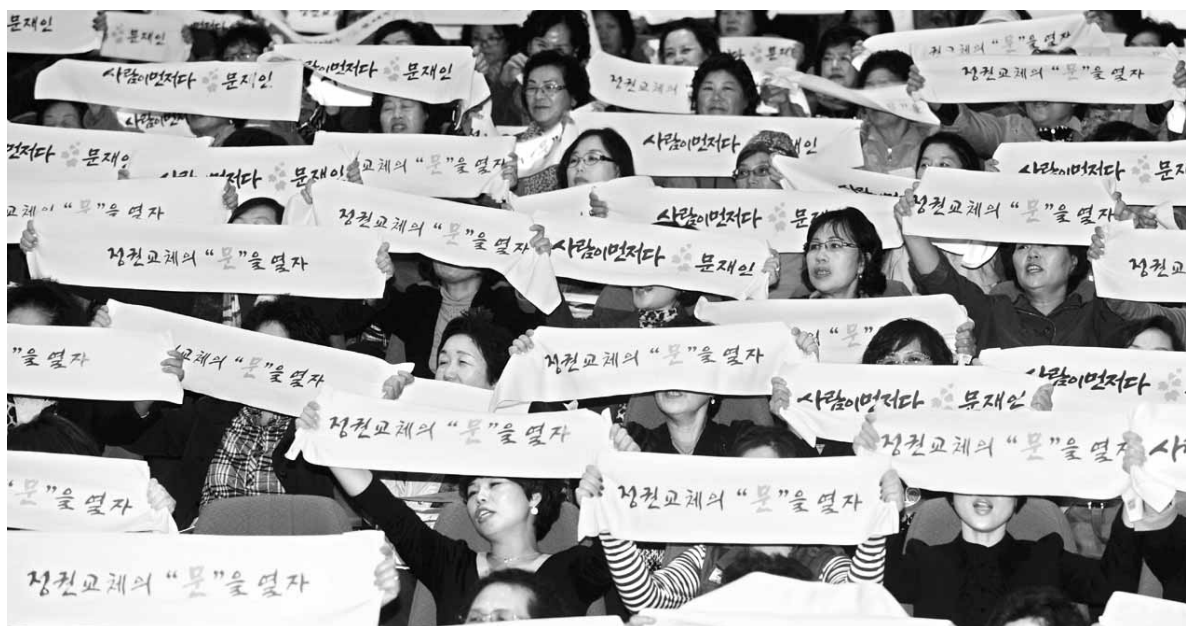 문재인
문재인
사람이먼저다 문재인
사람이먼저다 문재인
정권교체의
문재인
권교체의 "문"을 열자
정권교체의 "문"을 열자
사람이먼저다
먼저다 문재인
사람이먼저다 문재인
교체의 "문"을 열자
사람이먼저다 문재인
사람이먼저다 문재
교체의 "문"을 열자
정권교체의 "문"을 열자
사람이먼저다 문재인
정권교체의 "문"을 열자
정권교체의 "문"을 열자
사람이먼저다 문재인
정권교
"문"
"을 열자
교체의 "문"을 열자
정권교체의 "문"을 열자
사람이먼저다 문재인
사람이먼저다
정권교체의 "문"을 열자
정권교체의 "문"을 열자
사
"문"을 열자
정권교체의 "문"을 열자
정권교체의 "문"을 열자